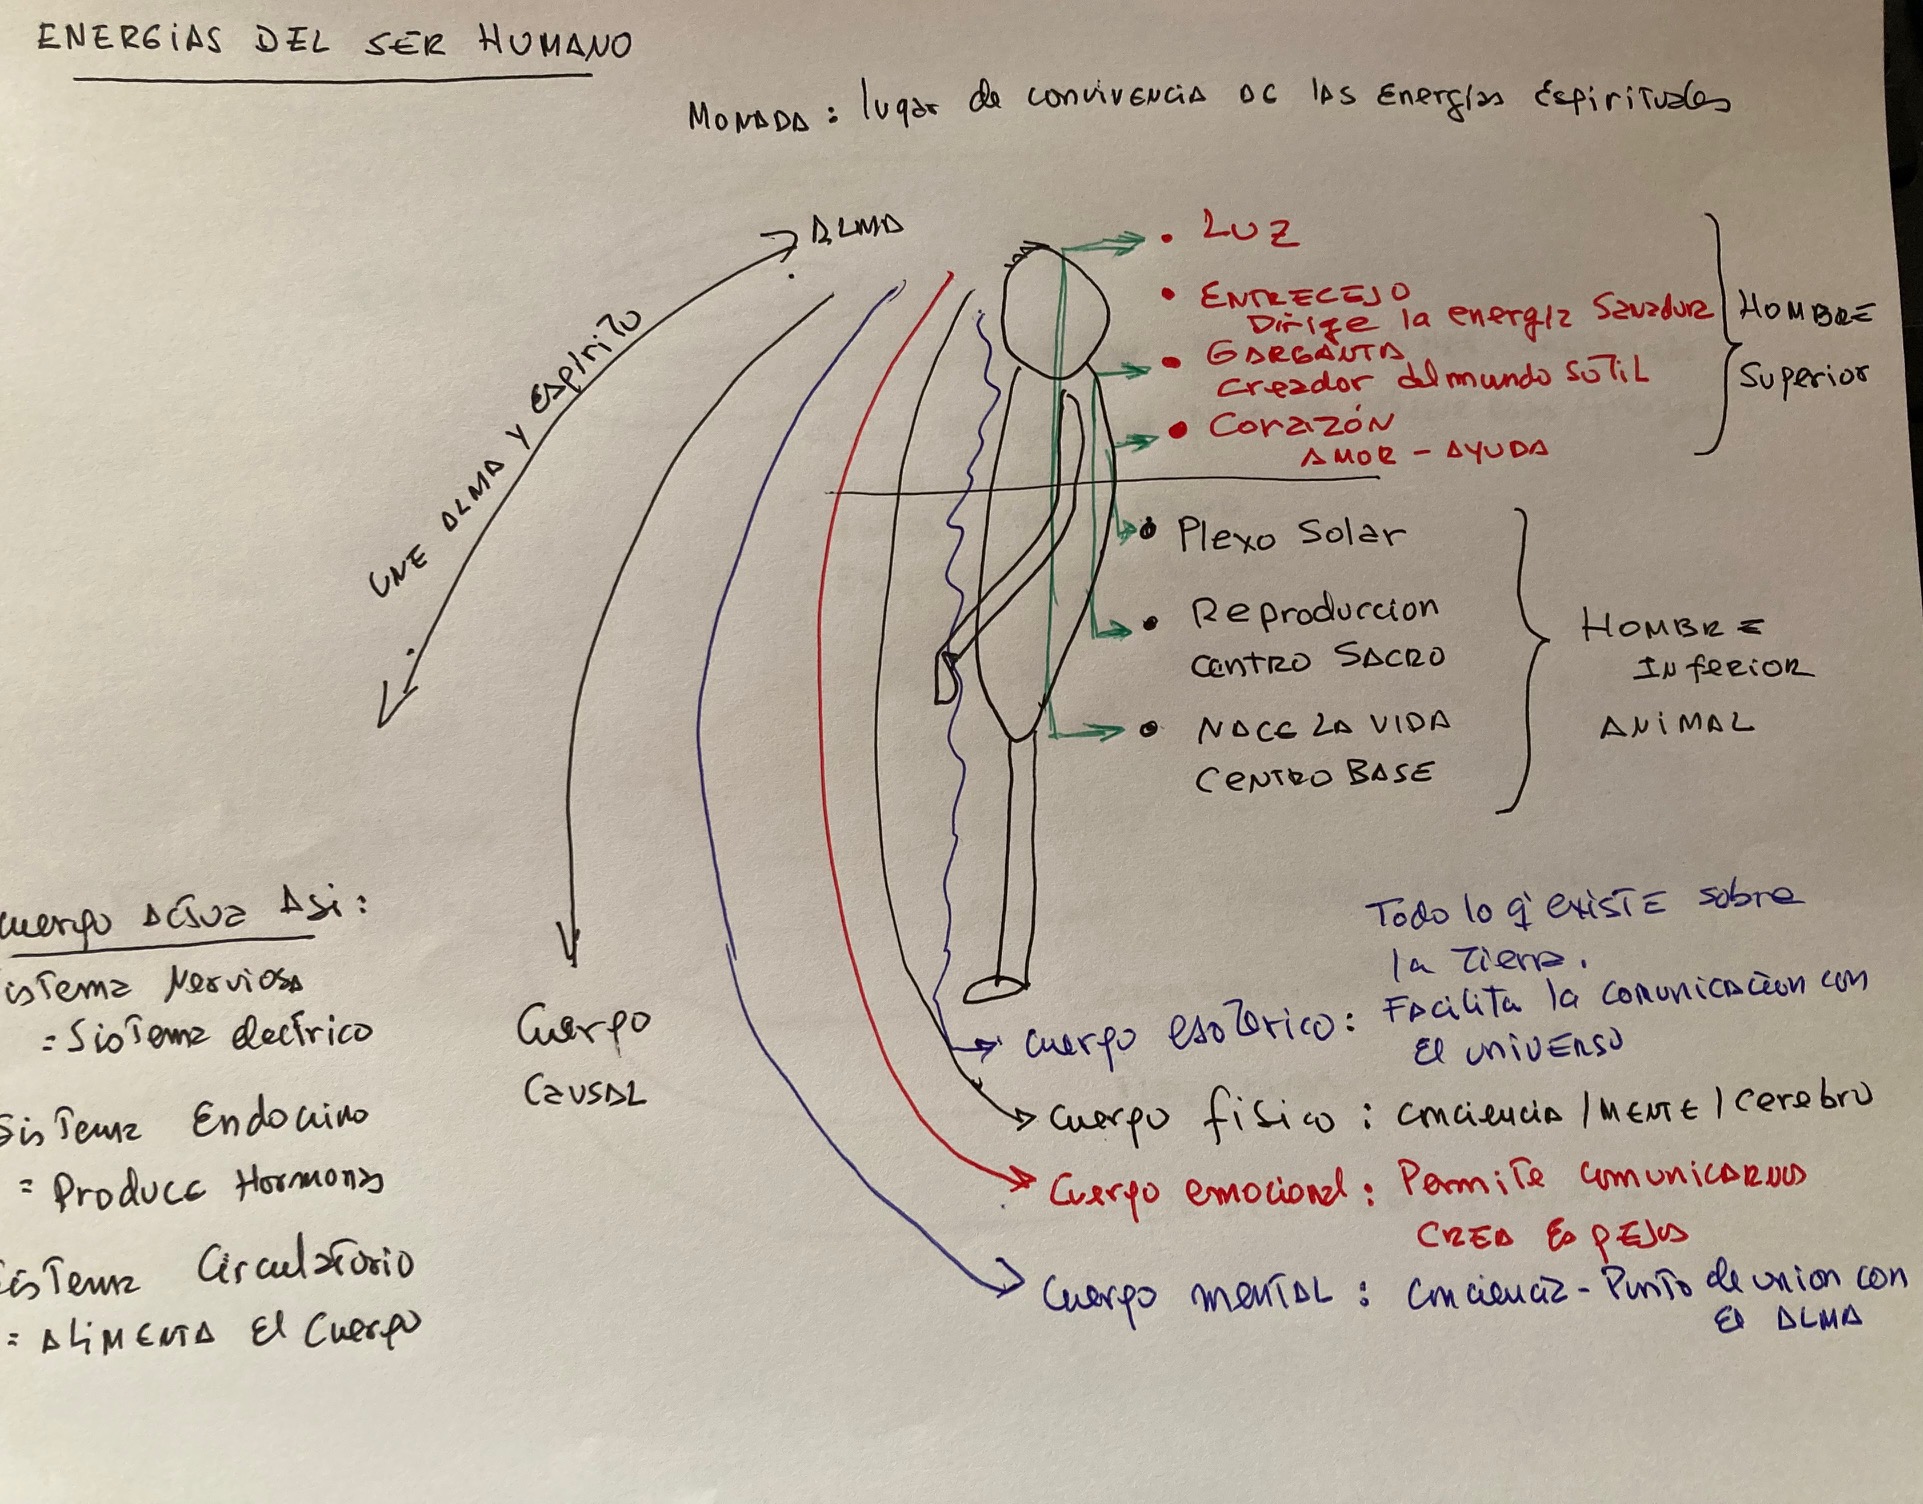 ENERGIAS DEL SER HUMANO
MONADA: lugar de convivencia de las Energías Espirituales
ALMA
UNE ALMA Y ESPIRITO
• LUZ
• ENTRECEJO
Dirige la energía Sanadora
• GARGANTA
creador del mundo SOTIL
• Corazón
AMOR - AYUDA
HOMBRE
Superior
• Plexo Solar
• Reproduccion
centro SACRO
• NACE LA VIDA
CENTRO BASE
HOMBRE
INferior
ANIMAL
cuerpo actua Asi:
istema Nerviosa
= Sistema electrico
Sistema Endocrino
= Produce Hormonas
istema Circulatorio
= ALIMENTA El Cuerpo
Cuerpo
CAUSAL
Todo lo q' existe sobre
la Tierra.
cuerpo esoterico: Facilita la comunicacion con
El UNIVERSO
cuerpo fisico: conciencia / MENTE / cerebro
Cuerpo emocional: Permite comunicarnos
CREA Espejos
Cuerpo mental: conciencia - Punto de union con
El ALMA